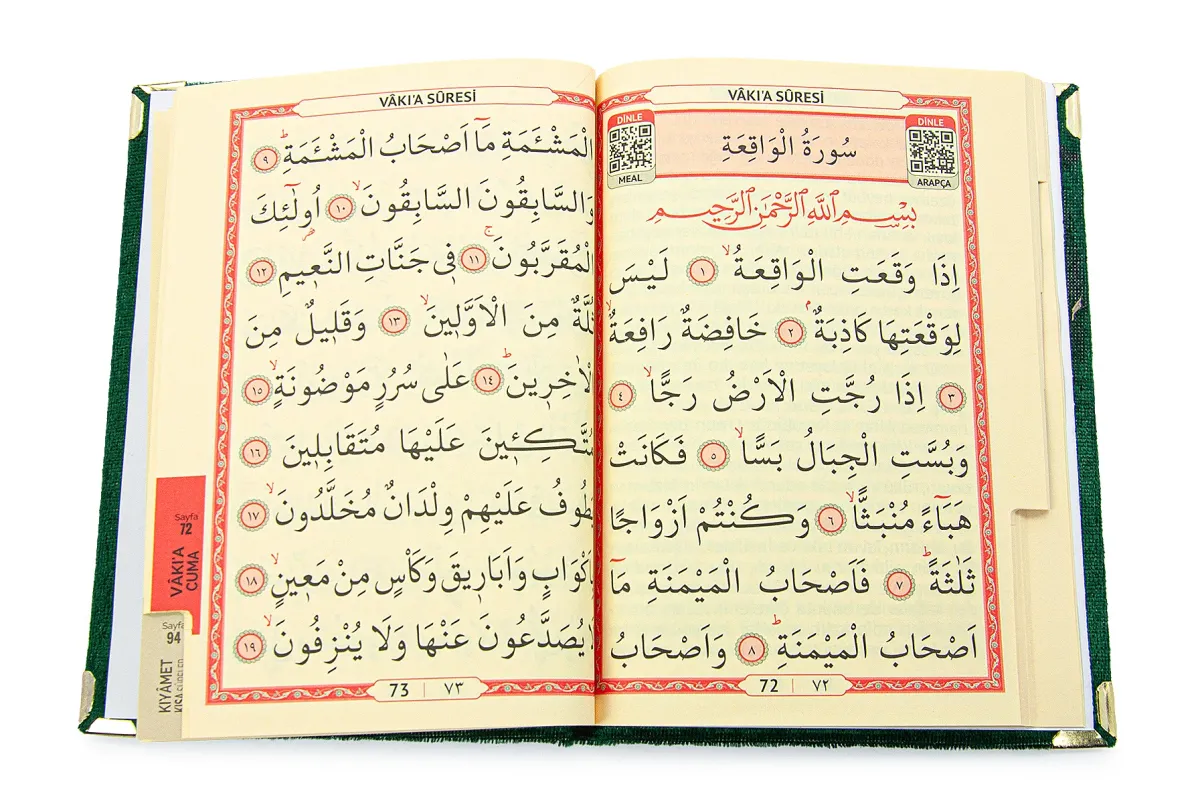 VÂKI'A SÛRESİ
DİNLE
MEAL
سُورَةُ الْوَاقِعَةِ
DİNLE
ARAPÇA
بِسْمِ اللّٰهِ الرَّحْمٰنِ الرَّحِيمِ
اِذَا وَقَعَتِ الْوَاقِعَةُۙ ﴿١﴾ لَيْسَ
لِوَقْعَتِهَا كَاذِبَةٌۢ ﴿٢﴾ خَافِضَةٌ رَافِعَةٌۙ
﴿٣﴾ اِذَا رُجَّتِ الْاَرْضُ رَجًّاۙ ﴿٤﴾
وَبُسَّتِ الْجِبَالُ بَسًّاۙ ﴿٥﴾ فَكَانَتْ
هَبَٓاءً مُنْبَثًّاۙ ﴿٦﴾ وَكُنْتُمْ اَزْوَاجًا
ثَلٰثَةًۜ ﴿٧﴾ فَاَصْحَابُ الْمَيْمَنَةِ مَٓا
اَصْحَابُ الْمَيْمَنَةِۜ ﴿٨﴾ وَاَصْحَابُ
72 | ٧٢
VÂKI'A SÛRESİ
الْمَشْـَٔمَةِ مَٓا اَصْحَابُ الْمَشْـَٔمَةِۜ ﴿٩﴾
وَالسَّابِقُونَ السَّابِقُونَۙ ﴿١٠﴾ اُولٰٓئِكَ
الْمُقَرَّبُونَۚ ﴿١١﴾ فٖي جَنَّاتِ النَّعٖيمِ ﴿١٢﴾
ثُلَّةٌ مِنَ الْاَوَّلٖينَۙ ﴿١٣﴾ وَقَلٖيلٌ مِنَ
الْاٰخِرٖينَۜ ﴿١٤﴾ عَلٰى سُرُرٍ مَوْضُونَةٍۙ ﴿١٥﴾
مُتَّكِـٖٔينَ عَلَيْهَا مُتَقَابِلٖينَ ﴿١٦﴾
يَطُوفُ عَلَيْهِمْ وِلْدَانٌ مُخَلَّدُونَۙ ﴿١٧﴾
بِاَكْوَابٍ وَاَبَارٖيقَ وَكَأْسٍ مِنْ مَعٖينٍۙ ﴿١٨﴾
لَا يُصَدَّعُونَ عَنْهَا وَلَا يُنْزِفُونَۙ ﴿١٩﴾
73 | ٧٣
Sayfa
72
VÂKI'A
CUMA
Sayfa
94
KIYÂMET
KISA SÛRELER